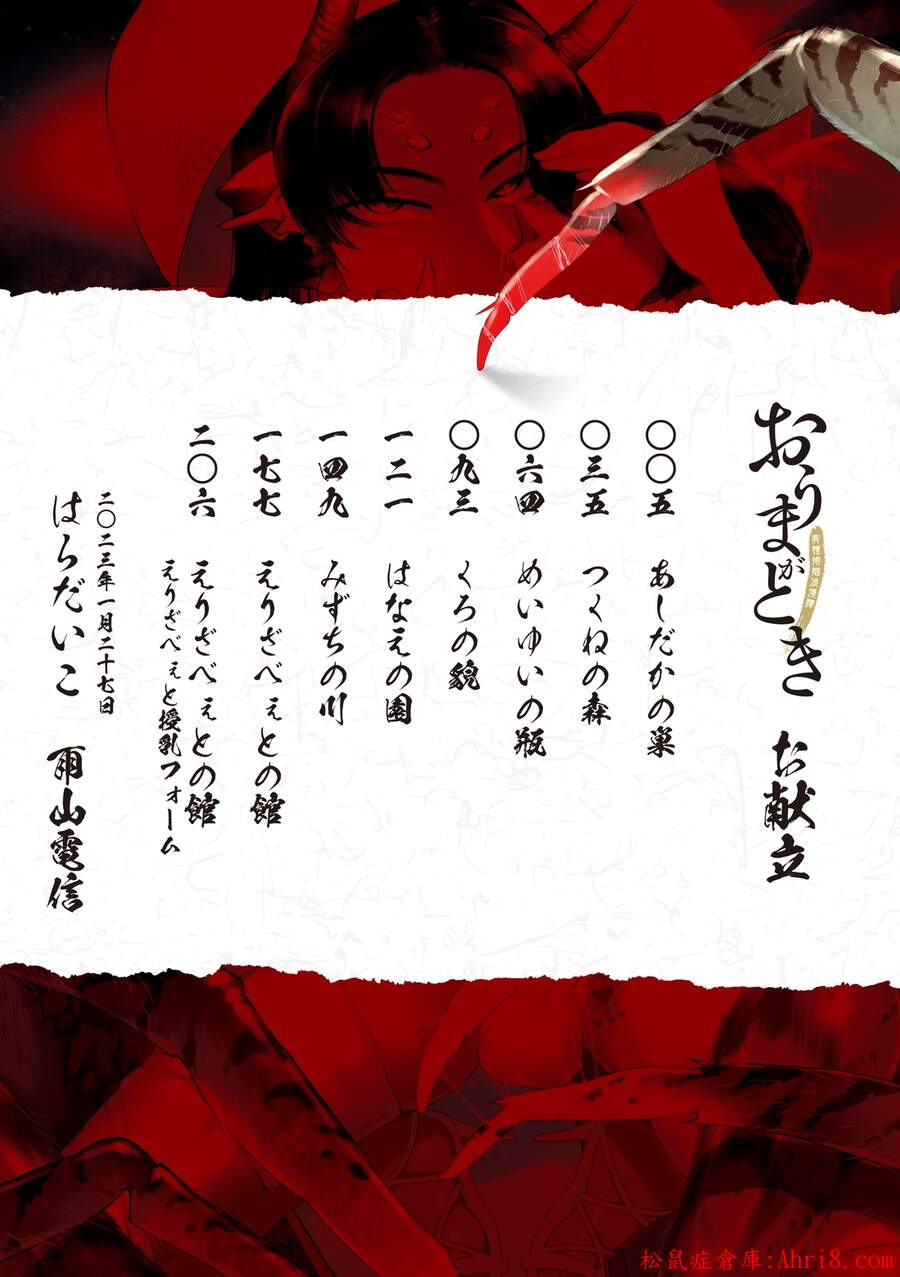 おりまがとき
異種婚姻浪漫譚
お献立
〇〇五 あしだかの巣
〇三五 つくねの森
〇六四 めいゆいの瓶
〇九三 くろの貌
一二一 はなえの園
一四九 みずちの川
一七七 えりざべぇとの館
二〇六 えりざべぇとの館
えりざべぇと授乳フォーム
二〇二三年一月二十七日
はらだいこ 雨山電信
松鼠症倉庫:Ahri8.com